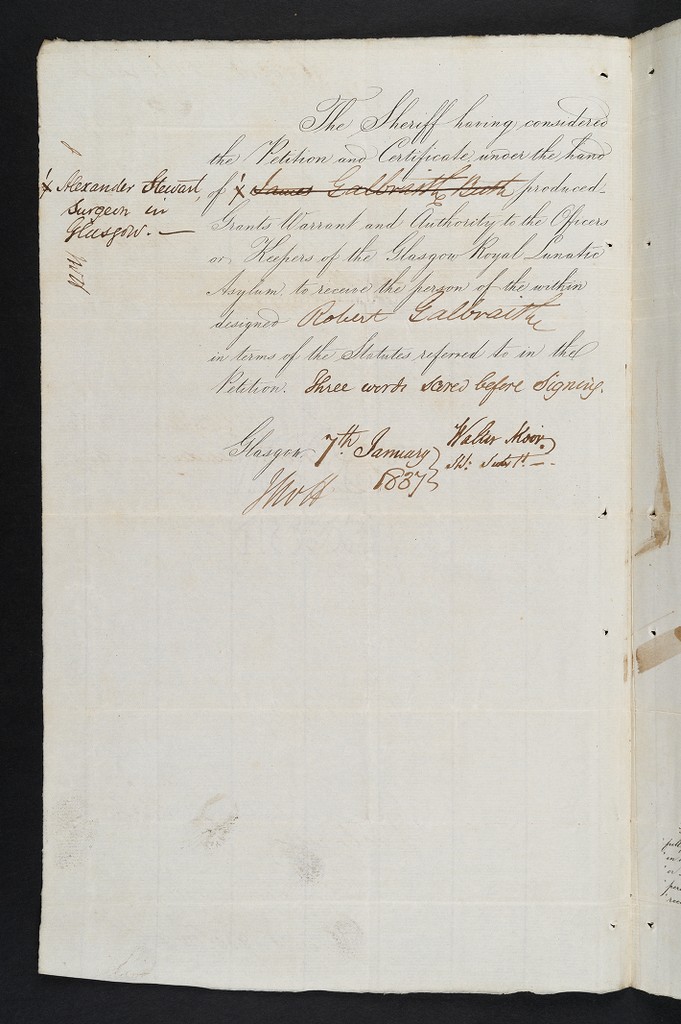 The Sheriff having considered
the Petition and Certificate under the hand
of X James Galbraith Both produced
Grants Warrant and Authority to the Officers
or Keepers of the Glasgow Royal Lunatic
Asylum to receive the person of the within
designed Robert Galbraith
in terms of the Statutes referred to in the
Petition. Three words scored before signing.
Glasgow 7th January
1837
Walter Moir
X Alexander Stewart,
Surgeon in
Glasgow. —